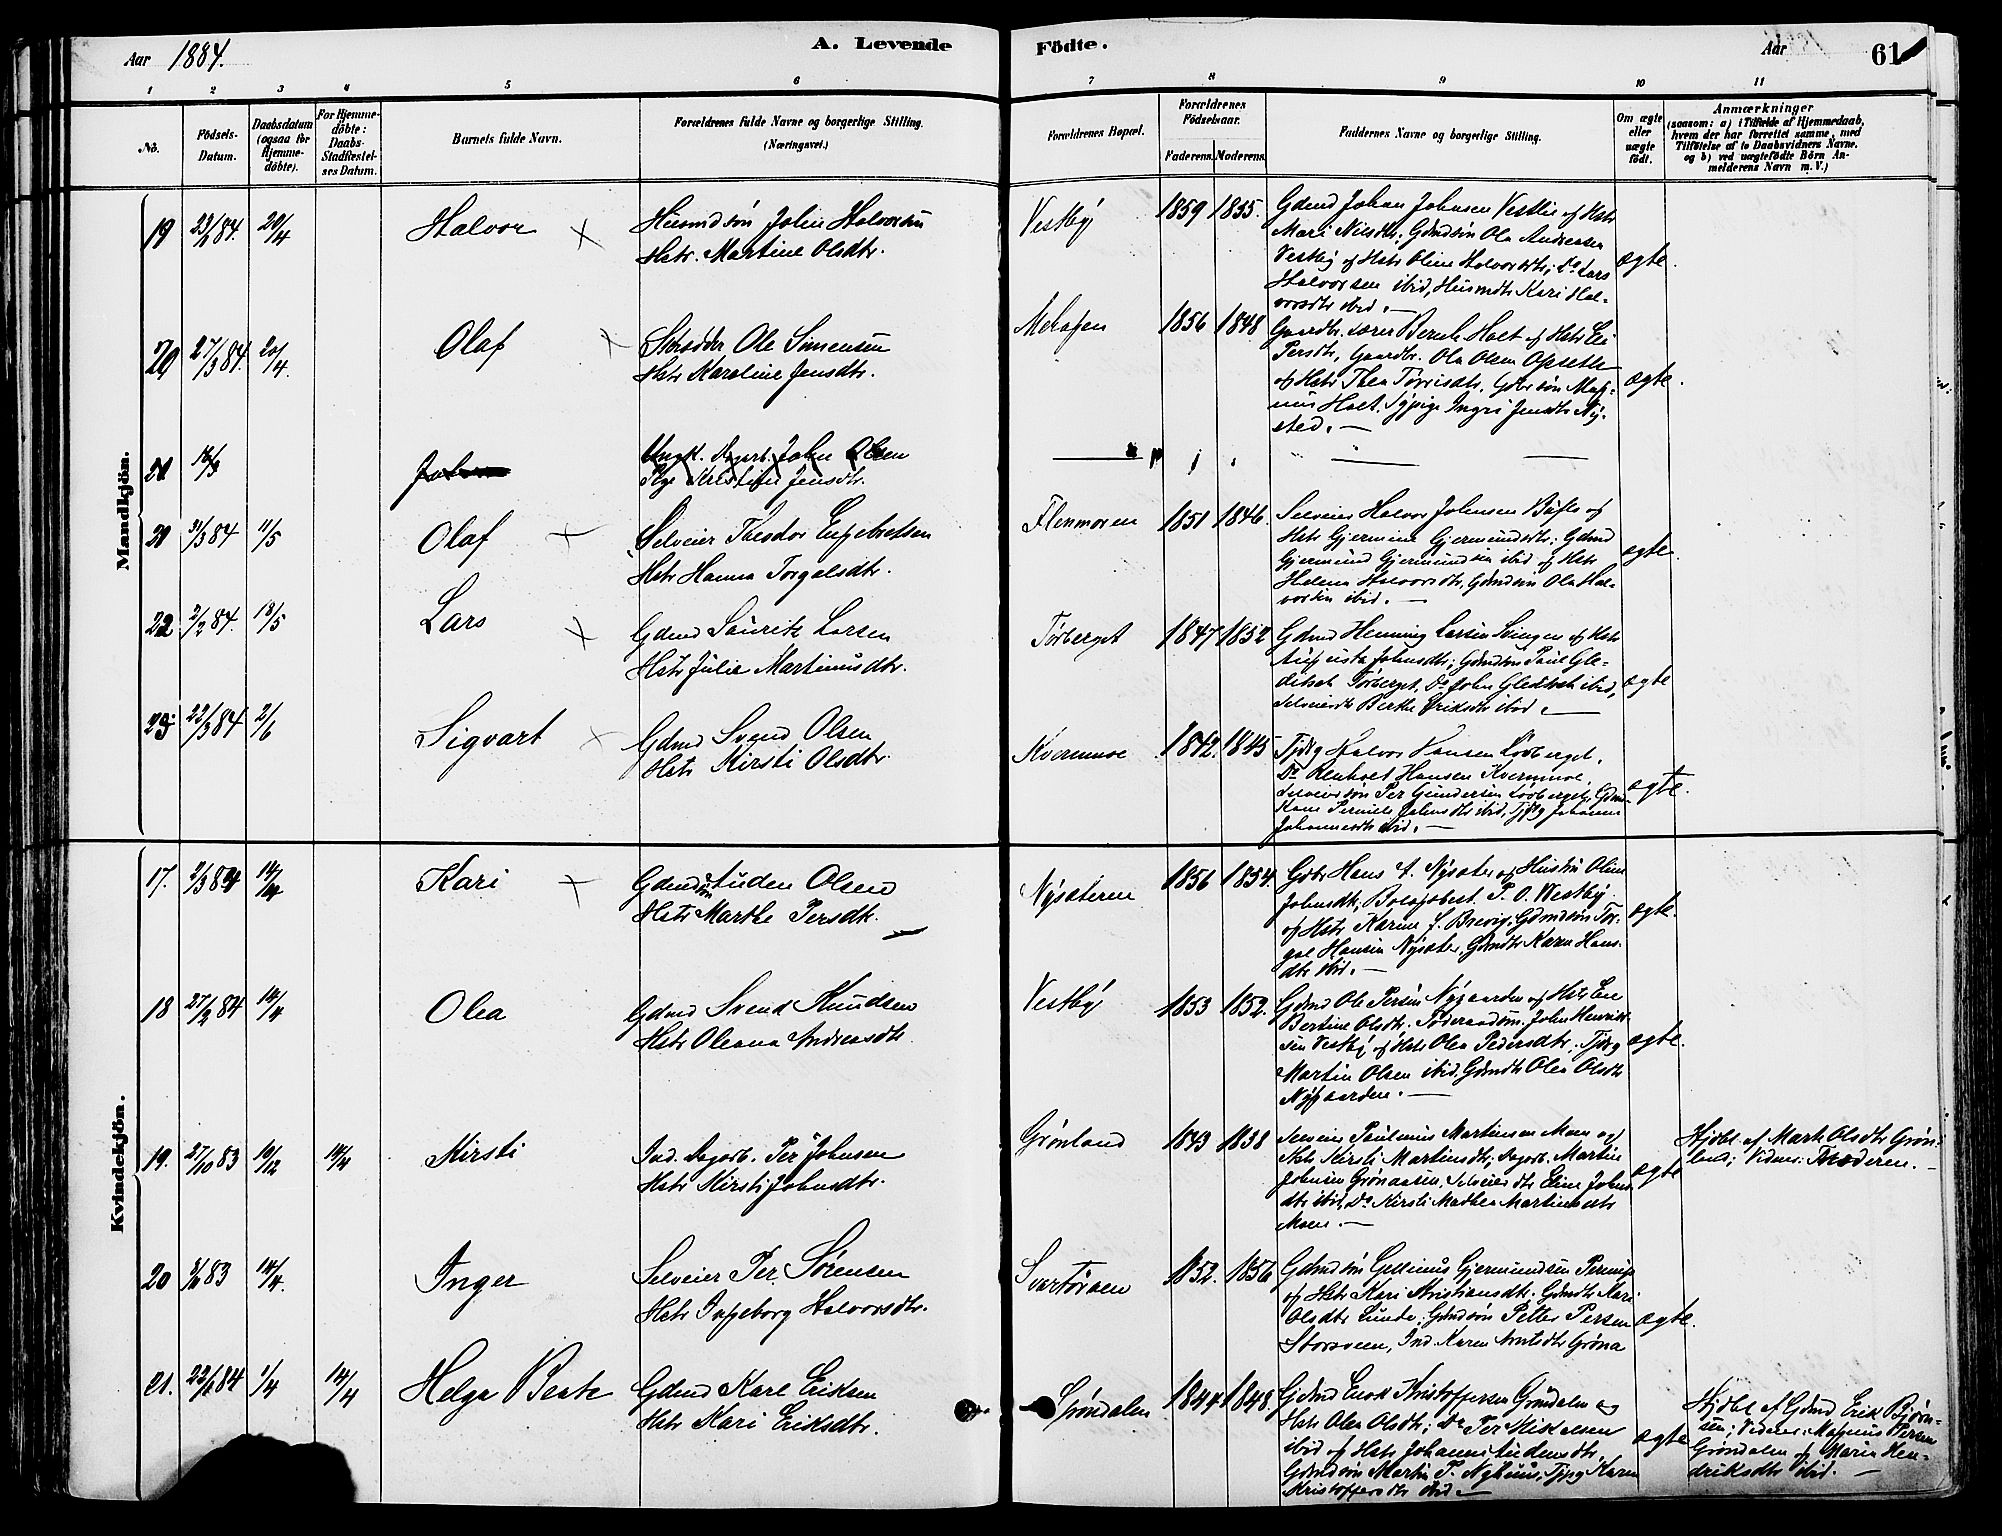 Aar 1884.
A. Levende
Födte.
Aar
61
1 2 3 4 5 6 7 8 9 10 11
No.
Födsels-Datum.
Daabsdatum (ogsaa for Hjemme-döbte).
For Hjemme-döbte: Daabs-Stadfæstel-ses Datum.
Barnets fulde Navn.
Forældrenes fulde Navne og borgerlige Stilling.
(Næringsvei.)
Forældrenes Bopæl.
Forældrenes Födselsaar.
Faderens. Moderens.
Faddernes Navne og borgerlige Stilling.
Om ægte eller uægte födt.
Anmærkninger
(saasom: a) i Tilfælde af Hjemmedaab,
hvem der har forrettet samme, med
Tilföielse af to Daabsvidners Navne.
og b) ved uægtefödte Börn An-
melderens Navn m. V.)
Mandkjön.
19 23/1 84. 20/4 Halvor
Husmdsøn John Halvorsen
Hstr. Martine Olsdtr.
Vestby 1859 1855.
Gdmd Johan Johnsen Vestby og Hstr
Mari Nilsdtr, Gdmdsøn Ola Andreasen
Vestby og Hstr Oline Halvorsdtr; Do Lars
Halvorsen ibid, Husmdtr Kari Hal-
vorsdtr ibid. —
ægte.
20 27/3 84. 20/4. Olaf
Skrædder Ole Simensen
Hstr Karoline Jensdtr.
1856 1848
Gaardbr. Lærer Bernh Holt og Hstr
Persdtr, Gaardbr. Ola Olsen Opseth
og Hstr Thea Torrisdtr, Gdbr søn Mag-
nus Holt. Sypige Ingri Jensdtr Ny-
sted. —
ægte.
21 14/3
Ungk. Dagarb. John Olsen
Pige Kristine Jensdtr.
21 31/3 84 11/5 Olaf
Selveier Theodor Engebretsen
Hstr Hanna Torgalsdtr.
Flenmoen 1851 1846.
Selveier Halvor Johnsen
Hstr Gjermine Gjermundsdtr; Gdmd
Gjermund Gjermundsen ibid og Hstr
Helene Halvorsdtr, Gdmdsøn Ola Hal-
vorsen ibid. —
ægte.
22 2/2 84. 18/5 Lars
Gdmd Lauritz Larsen
Hstr Julie Martinusdtr.
Tørberget 1847 1852
Gdmd Henning Larsen Svingen og Hstr
Augusta Johnsdtr; Gdmdsøn Paul Gle-
ditsch Tørberget, Do John Gleditsch ibid,
Selveierdtr Berthe Eriksdtr ibid. —
ægte
23 22/3 84 2/6 Sigvart
Gdmd Svend Olsen
Hstr Kirsti Olsdtr.
Kvermoe 1842. 1845
Tjdrg Halvor Hansen Lørberget,
Do Renholt Hansen Kvermoe,
Selveiersøn Per Gundersen
Johnsdtr ibid, Tjpg Johanne
Johannesdtr ibid. —
ægte.
Kvindekjön.
17. 2/3 84 14/4 Kari
Gdmdsøn Auden Olsen
Hstr Marthe Persdtr.
Nysæteren 1856 1854.
Gdbr Hans A. Nysæter og Hustru Oline
Johnsdtr; P. O. Westby
og Hstr Karine J. Brevig, Gdmdsøn Tor-
gal Hansen Nysæter, Gdmdtr Karen Hans-
dtr ibid. —
ægte.
18 27/2 84 14/4 Olea
Gdmd Svend Knudsen
Hstr Oleana Andreasdtr.
Vestby 1853 1852.
Gdmd Ole Persen Nygaarden og Hstr
Bertine Olsdtr. Føderaadsm. John Henrik-
sen Vestby og Hstr Olea Pedersdtr, Tjdrg
Martin Olsen ibid, Gdmdtr Olea Olsdtr
Nygaarden. —
ægte.
19. 27/10 83 10/12 14/4 Kirsti
Ind. Dagarb. Per Johnsen
Hstr Kirsti Johnsdtr.
Grønland 1843 1838
Selveier Paulinus Martinsen Moen og
Hstr Kirsti Martinsdtr; Dagarb. Martin
Johnsen Grønaasen, Selveier dtr Eline Johns-
dtr ibid, Do Kirsti Mathea Martinsdtr
Moen. —
ægte
Hjdbt. af Marth. Olsdtr Grøn-
land; Vidner: Forældrene. —
20 83 14/4. Inger
Selveier Per Sørensen
Hstr Ingeborg Halvorsdtr.
1852. 1856
Gdmdsøn Gjermundsen
og Hstr Kari Kristiansdtr. Gdmdtr Kari
Olsdtr Lunde, Gdmdsøn Petter Persen
Storsveen, Ind. Karen Arntsdtr Grøna
ægte.
21. 22/1 84 1/4 14/4 Helga Beate
Gdmd Karl Eriksen
Hstr Kari Eriksdtr.
Grøndalen 1844 1848.
Gdmd Erik Kristoffersen Grøndalen og
Hstr Olea Olsdtr; Do Per Mikkelsen
ibid og Hstr Johanne Audensdtr,
Gdmdsøn Martin P. Nyhuus, Tjpg Karen
Kristoffersdtr ibid. —
ægte
Hjdbt af Gdmd Erik Bjørn-
sen; Vidner: Magnus Persen
Grøndalen og Maria Hen-
driksdtr ibid. —